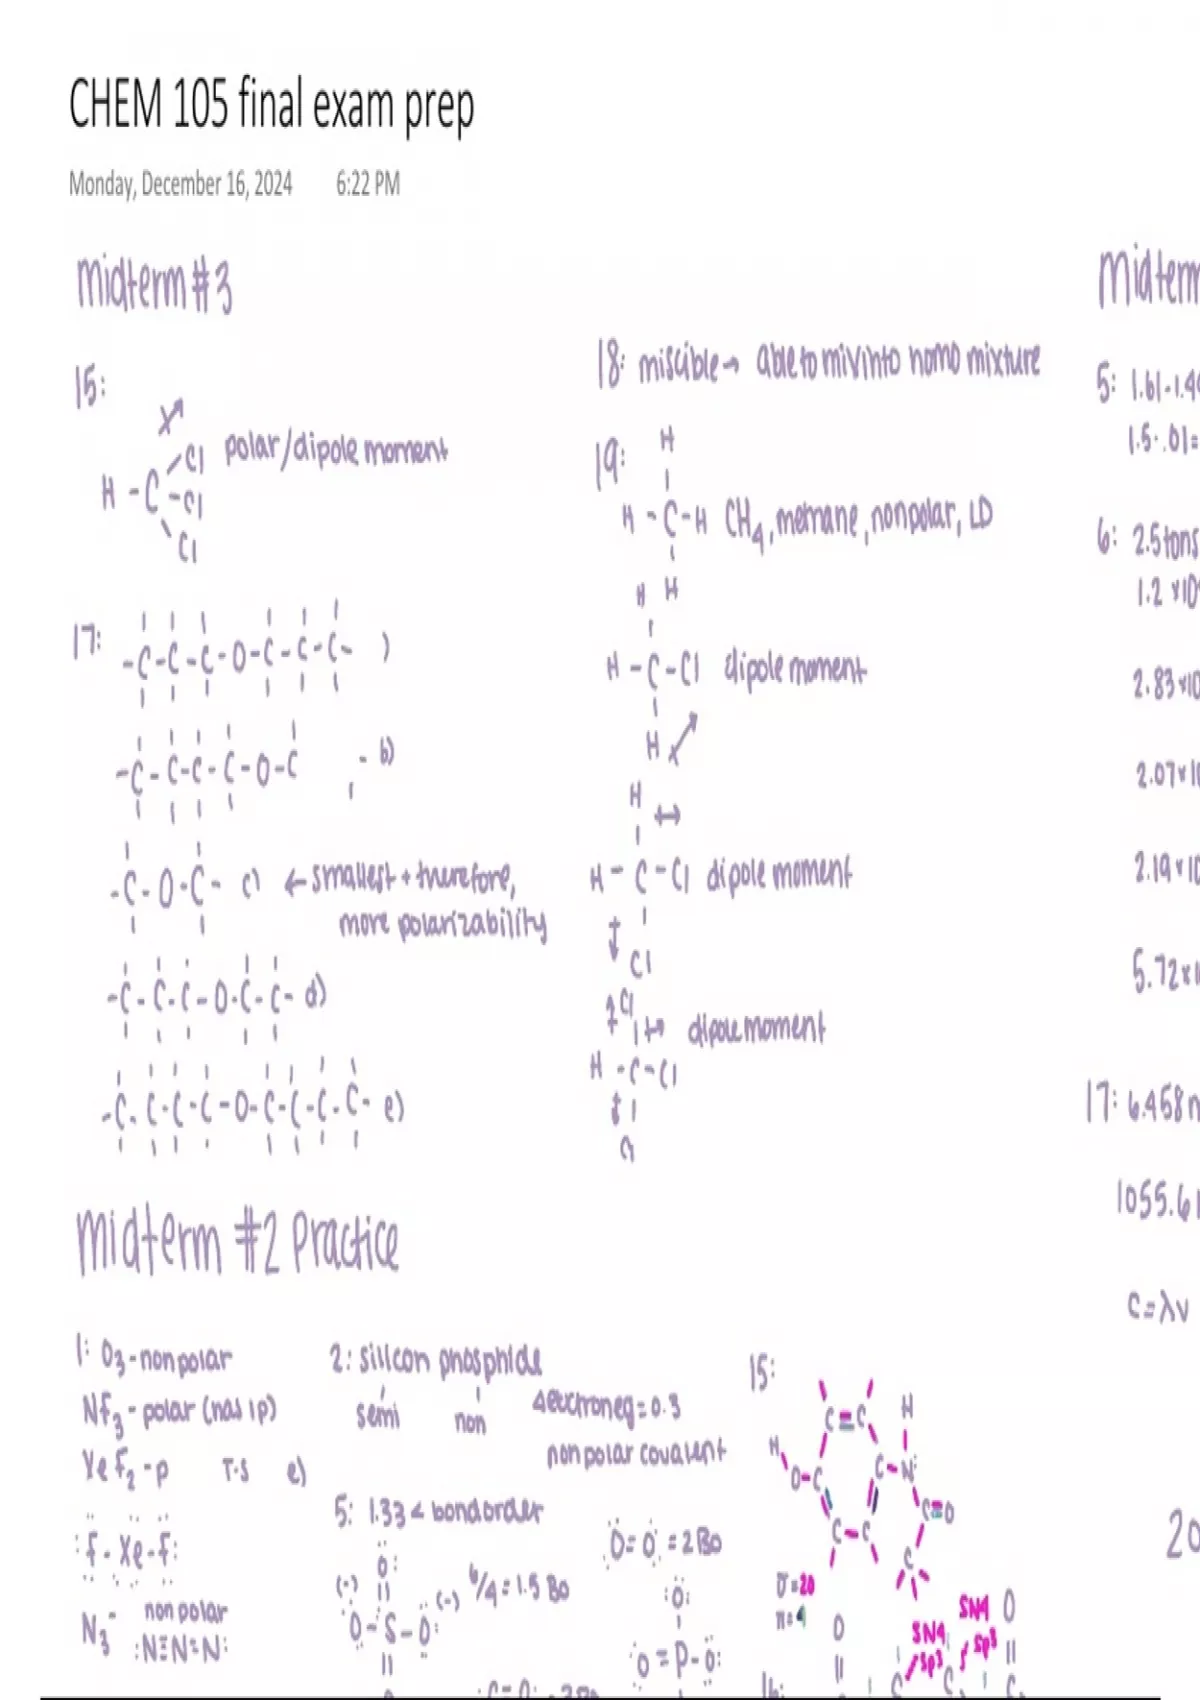 CHEM 105 final exam prep
Monday, December 16, 2024 6:22 PM
Midterm #3
15:
H - C - Cl polar/dipole moment
Cl
Cl
17:
-C-C-C-O-C-C-C- )
-C-C-C-C-O-C - b)
-C-O-C- c) ← smallest + therefore,
more polarizability
-C-C-C-O-C-C- d)
-C-C-C-C-O-C-C-C-C- e)
18: miscible → able to mix into homo mixture
19:
H
H - C - H CH4, methane, nonpolar, LD
H
H
H - C - Cl dipole moment
H
H
H - C - Cl dipole moment
Cl
Cl
H - C - Cl dipole moment
Cl
Midterm #2 Practice
1: O3 - nonpolar
NF3 - polar (has lp)
XeF2 - p T-S e)
:F - Xe - F:
N3- nonpolar
:N≡N-N:
2: silicon phosphide
semi non Δelectroneg = 0.3
nonpolar covalent
5: 1.33 < bond order
O:
(-) (-) 6/4 = 1.5 BO
O - S - O:
O = O = 2BO
:O:
O = P - O:
15:
C = C H
H
O - C C - N:
C = O
C - C
C
σ = 20
π = 4
SN4
sp3
SN4
sp3
O
O
C
C
C
16:
Midterm
5: 1.61 - 1.4
1.5 - .01 =
6: 2.5 tons
1.2 x 10
2.83 x 10
2.07 x 1
2.19 x 10
5.72 x 1
17: 6.458 n
1055.61
C = λν
20